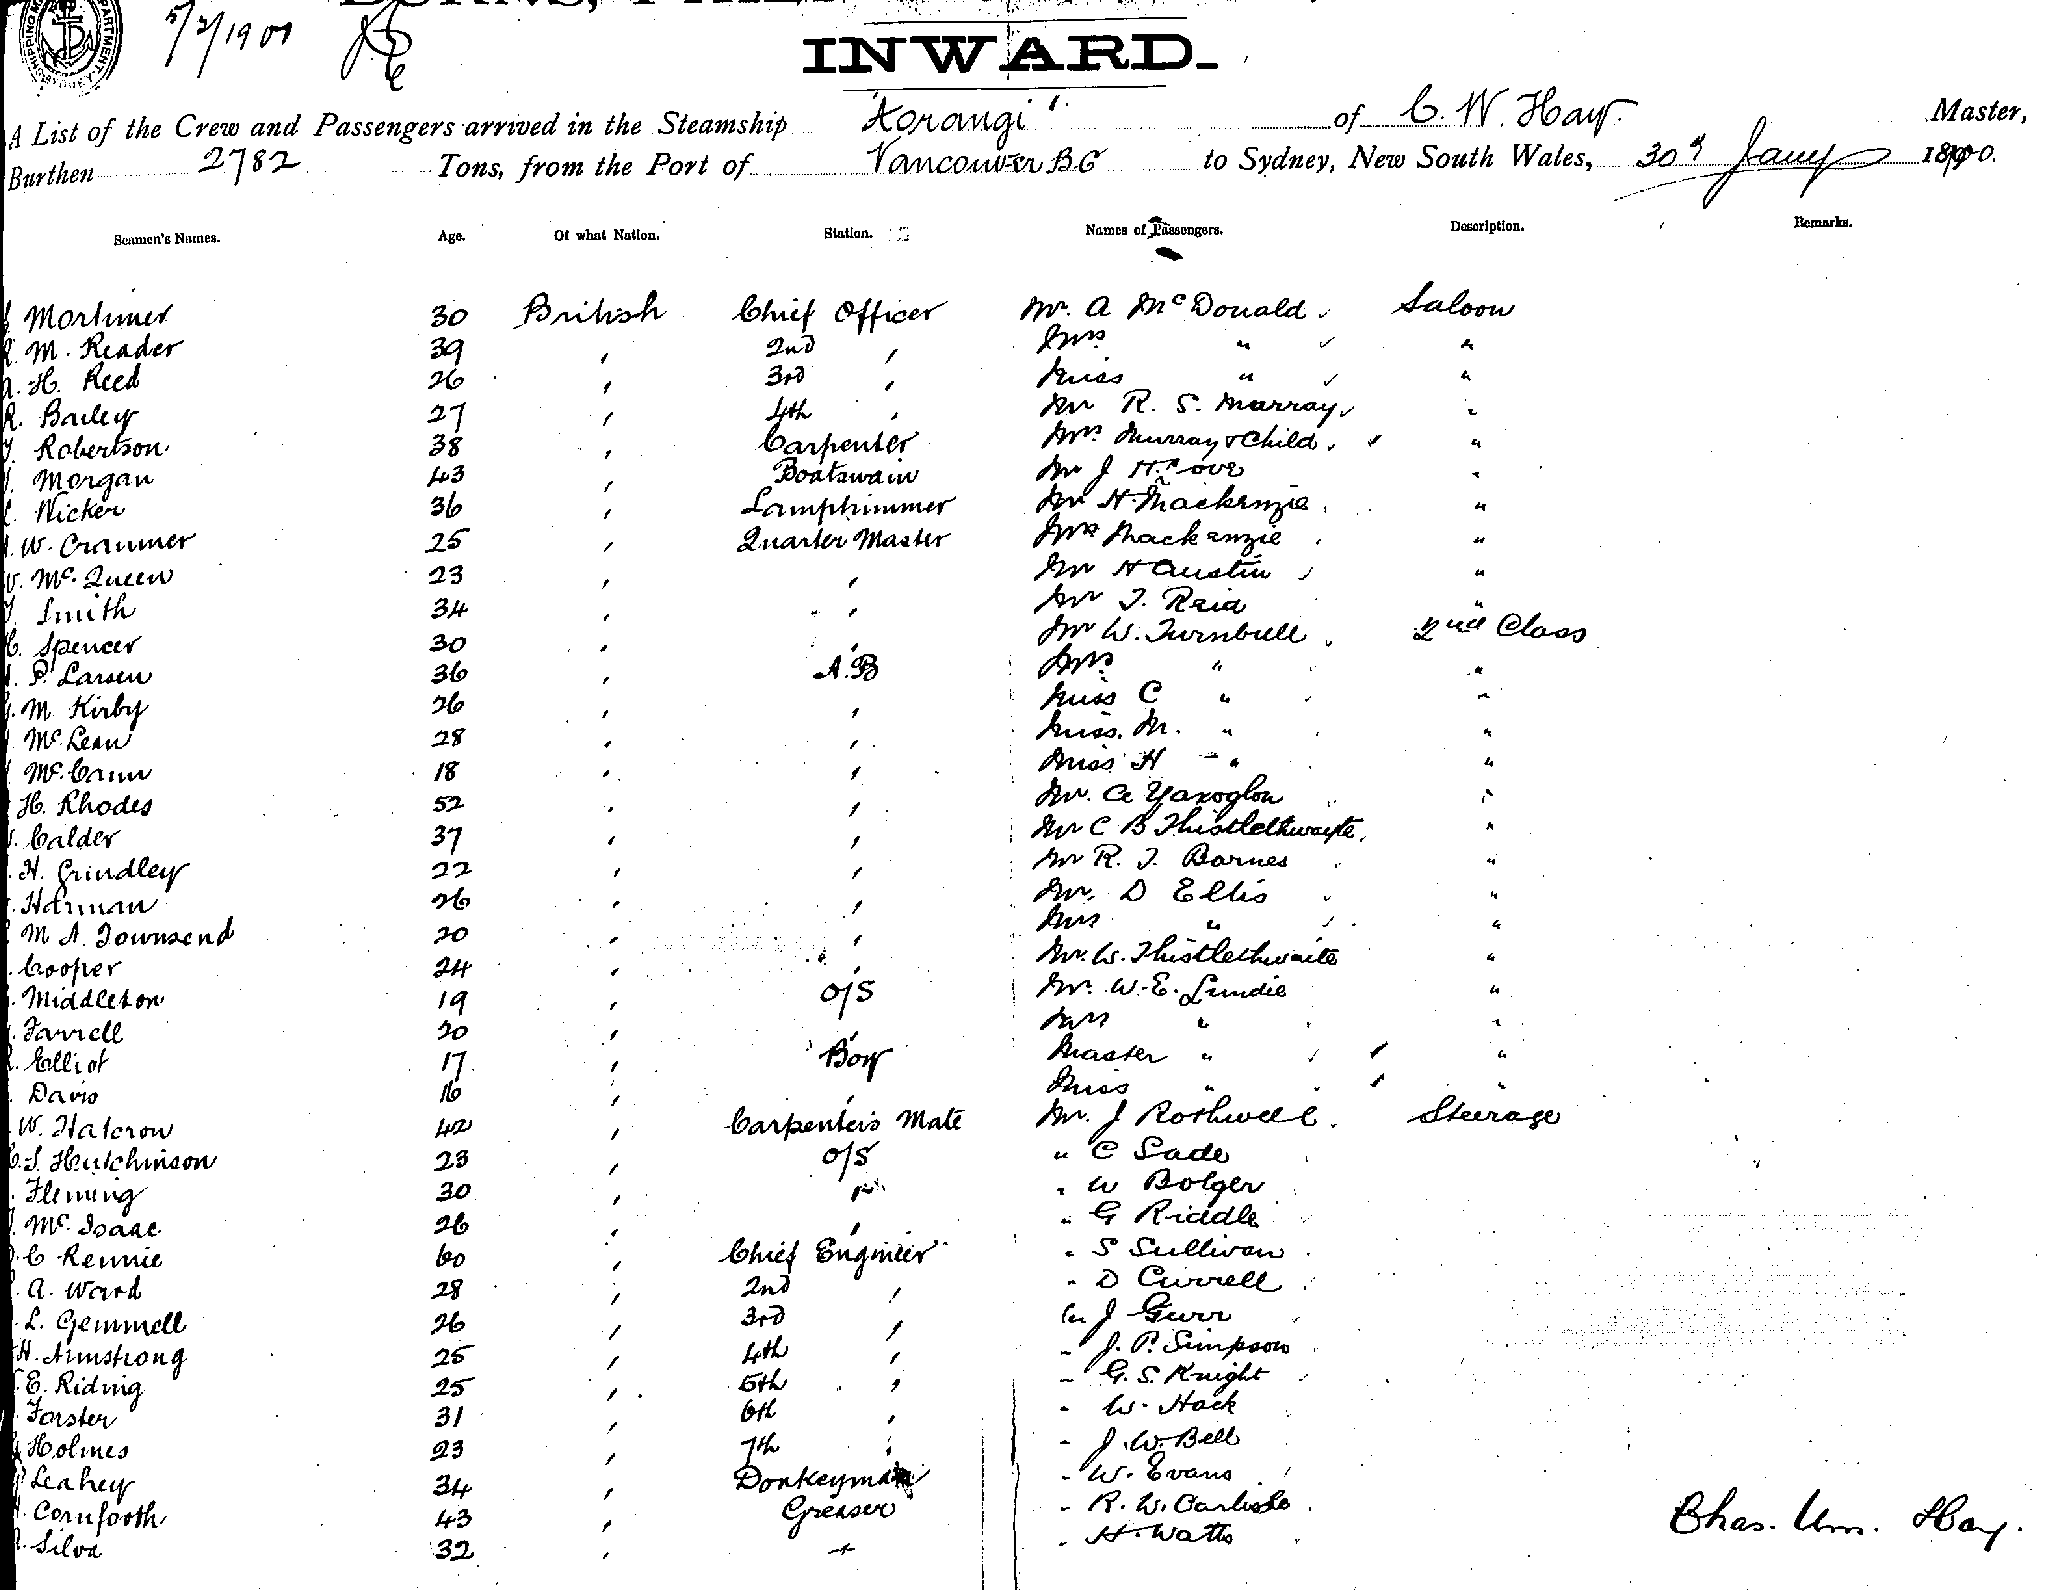 5/2/1900
INWARD.
A List of the Crew and Passengers arrived in the Steamship "Aorangi" of C. W. Hay. Master,
Burthen 2782 Tons, from the Port of Vancouver B.C to Sydney, New South Wales, 30th Jany 1900.
Seamen's Names. Age. Of what Nation. Station. Names of Passengers. Description. Remarks.
Mortimer 30 British Chief Officer Mr. A McDonald Saloon
M. Reader 39 , 2nd , Mrs " "
A. H. Reed 26 , 3rd , Miss " "
R. Bailey 27 , 4th , Mr R. S. Murray "
Robertson 38 , Carpenter Mrs Murray & Child "
Morgan 43 , Boatswain Mr J "
Wicker 36 , Lamptrimmer Mr H. Mackenzie "
W. Cranmer 25 , Quarter Master Mrs Mackenzie "
Mc. Queen 23 , , Mr H Austin "
Smith 34 , , Mr T. Reid "
C. Spencer 30 , , Mr W. Turnbull 2nd Class
P. Larsen 36 , A.B Mrs " "
M Kirby 26 , , Miss C " "
McLean 28 , , Miss. M. " "
Mc.Cann 18 , , Miss H " "
H. Rhodes 52 , , Mr. A Yaxoglou "
Calder 37 , , Mr C B Thistlethwayte. "
H. Grindley 22 , , Mr R. T. Barnes "
Harman 26 , , Mr. D Ellis "
M A. Townsend 20 , , Mrs " "
Cooper 24 , , Mr. W. Thistlethwaite "
Middleton 19 , O/S Mr. W. E. Lundie "
Farrell 20 , , Mrs " "
Elliot 17 , Boy Master " "
Davis 16 , , Miss " "
W. Halcrow 42 , Carpenter's Mate Mr. J Rothwell. Steerage
S. Hutchinson 23 , O/S " C Sade
Fleming 30 , , " W Bolger
Mc. Isaac 26 , , " G Riddle
C Rennie 60 , Chief Engineer " S Sullivan
A. Ward 28 , 2nd , " D Currell
L. Gemmell 26 , 3rd , " J Gurr
H. Armstrong 25 , 4th , " J. P. Simpson
E. Riding 25 , 5th , " G. S. Knight
Forster 31 , 6th , " W. Hack
Holmes 23 , 7th , " J. W. Bell
Leahey 34 , Donkeyman " W. Evans
Cornforth 43 , Greaser " R. W. Carlisle
Silva 32 , " " H. Watts
Chas. Wm. Hay.